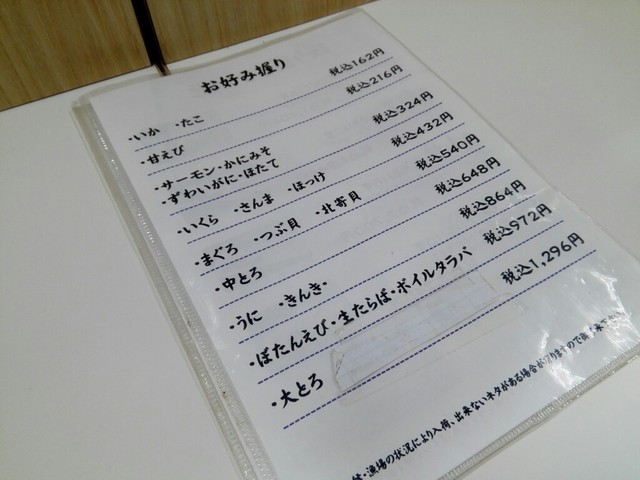 お好み握り
・いか ・たこ 税込162円
・甘えび 税込216円
・サーモン・かにみそ
・ずわいがに・ほたて 税込324円
・いくら ・さんま ・ほっけ 税込432円
・まぐろ ・つぶ貝 ・北寄貝 税込540円
・中とろ 税込648円
・うに ・きんき・ 税込864円
・ぼたんえび・生たらば・ボイルタラバ 税込972円
・大とろ 税込1,296円
・漁場の状況により入荷、出来ないネタがある場合が有りますので御了承下さい